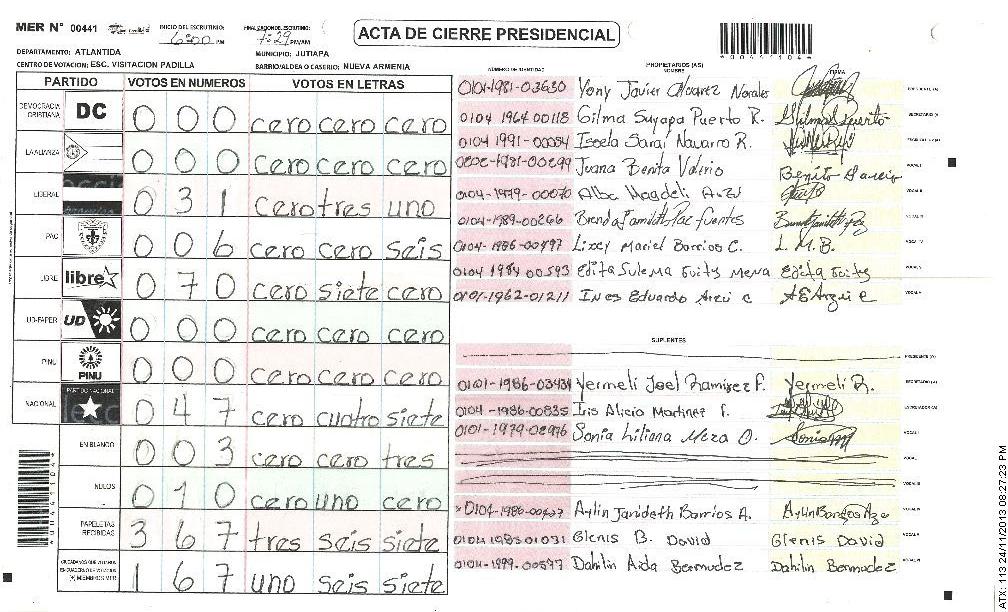 MER N° 00441
INICIO DEL ESCRUTINIO: 6:00 PM
FINALIZACION DE ESCRUTINIO: 7:29 PM/AM
ACTA DE CIERRE PRESIDENCIAL
*00441104*
DEPARTAMENTO: ATLANTIDA
MUNICIPIO: JUTIAPA
CENTRO DE VOTACION: ESC. VISITACION PADILLA
BARRIO/ALDEA O CASERIO: NUEVA ARMENIA
PARTIDO VOTOS EN NUMEROS VOTOS EN LETRAS
DEMOCRACIA CRISTIANA DC 0 0 0 cero cero cero
LA ALIANZA 0 0 0 cero cero cero
LIBERAL 0 3 1 cero tres uno
PAC 0 0 6 cero cero seis
LIBRE libre 0 7 0 cero siete cero
UD-FAPER UD 0 0 0 cero cero cero
PINU PINU 0 0 0 cero cero cero
NACIONAL PARTIDO NACIONAL 0 4 7 cero cuatro siete
EN BLANCO 0 0 3 cero cero tres
NULOS 0 1 0 cero uno cero
PAPELETAS RECIBIDAS 3 6 7 tres seis siete
CIUDADANOS QUE VOTARON EN CUADERNO DE VOTACION (+) MIEMBROS MER 1 6 7 uno seis siete
*00441104*
NÚMERO DE IDENTIDAD PROPIETARIOS (AS) NOMBRE FIRMA
0101-1981-03630 Yony Javier Alvarez Norales PRESIDENTE (A)
0104 1964 00118 Gilma Suyapa Puerto R. Gilma Puerto SECRETARIO (A)
0104 1991-00054 Isoela Sarai Navarro R. ESCRUTADOR (A)
-1981-00299 Juana Benita Valirio Benita VOCAL I
0104-1979-00070 Alba Magdeli VOCAL II
0104-1989-00266 Brenda Paz Fuentes VOCAL III
0104-1986-00497 Lixcy Mariel Barrios C. L. M. B. VOCAL IV
0104 1984 00593 Edita Sulema Guity Mena Edita Guity VOCAL V
0101-1962-01211 Ines Eduardo Arzu c VOCAL VI
SUPLENTES
PRESIDENTE (A)
0101-1986-03434 Yermeli Joel Ramirez P. Yermeli R. SECRETARIO (A)
0104-1986-00835 Iris Alicia Martinez F. ESCRUTADOR (A)
0101-1979-02976 Sonia Liliana Meza O. Sonia M VOCAL I
VOCAL II
VOCAL III
Aylin Janideth Barrios A. VOCAL IV
0104 1985 01031 Glenis B. David Glenis David VOCAL V
0104-1979-00597 Dahilin Aida Bermudez Dahilin Bermudez VOCAL VI
ATX: 113 24/11/2013 08:27:23 PM